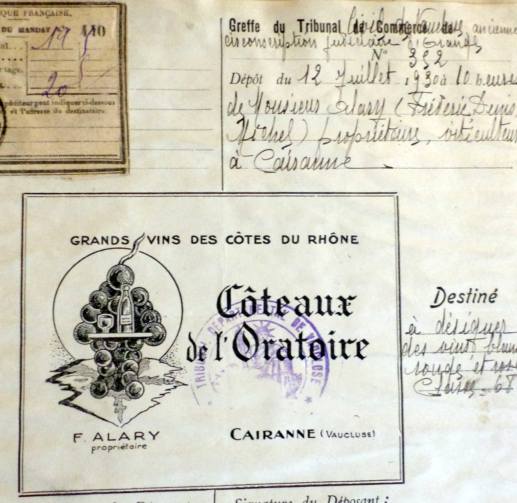 QUE FRANÇAISE.
DU MANDAT
17
20
et l'adresse du destinataire.
Greffe du Tribunal Civil de ancienne
circonscription judiciaire d'Orange
N° 352
Dépôt du 12 Juillet 1930 à 10 heures
de Monsieur Alary (Frédéric Denis,
Michel) propriétaire, viticulteur
à Cairanne
GRANDS VINS DES CÔTES DU RHÔNE
Côteaux
de l'Oratoire
F. ALARY
propriétaire
CAIRANNE (VAUCLUSE)
TRIBUNAL DÉPARTEMENTAL DE VAUCLUSE
Destiné
à désigner
des vins blanc
rouge et rosé
Classe 68
Signature du Déposant :